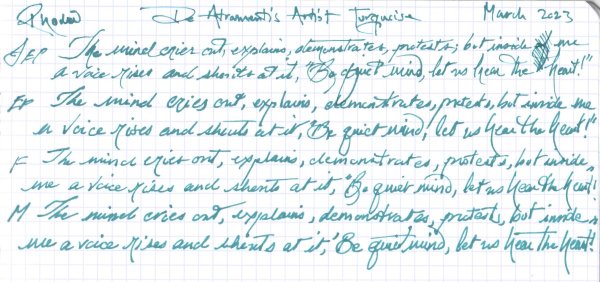 Rhodia De Atrament's Artist Turquoise March 2023
SEF The mind cries out, explains, demonstrates, protests; but inside me
a voice rises and shouts at it, "Be quiet mind, let us hear the heart!"
EF The mind cries out, explains, demonstrates, protests, but inside me
a voice rises and shouts at it, "Be quiet mind, let us hear the heart!"
F The mind cries out, explains, demonstrates, protests, but inside
me a voice rises and shouts at it, "Be quiet mind, let us hear the heart!
M The mind cries out, explains, demonstrates, protests, but inside
me a voice rises and shouts at it, "Be quiet mind, let us hear the heart!"